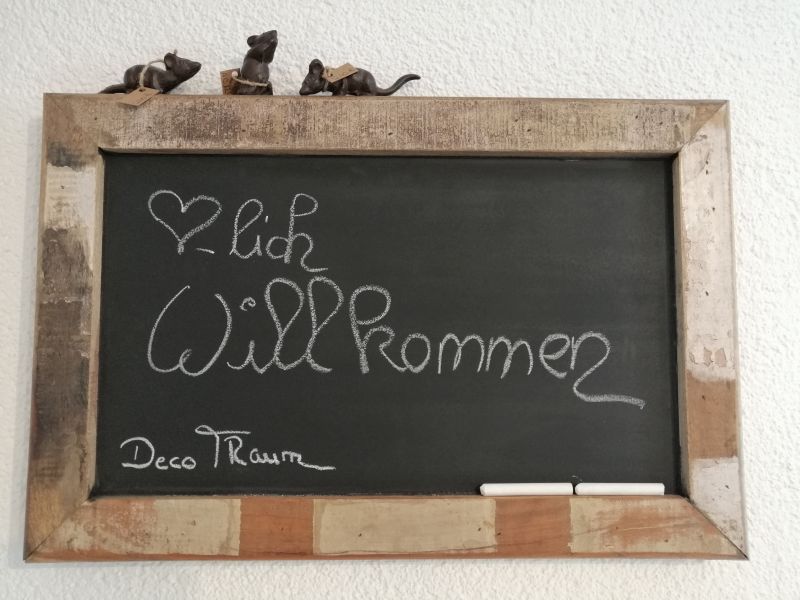 ♡-lich
Willkommen
Deco TRaum